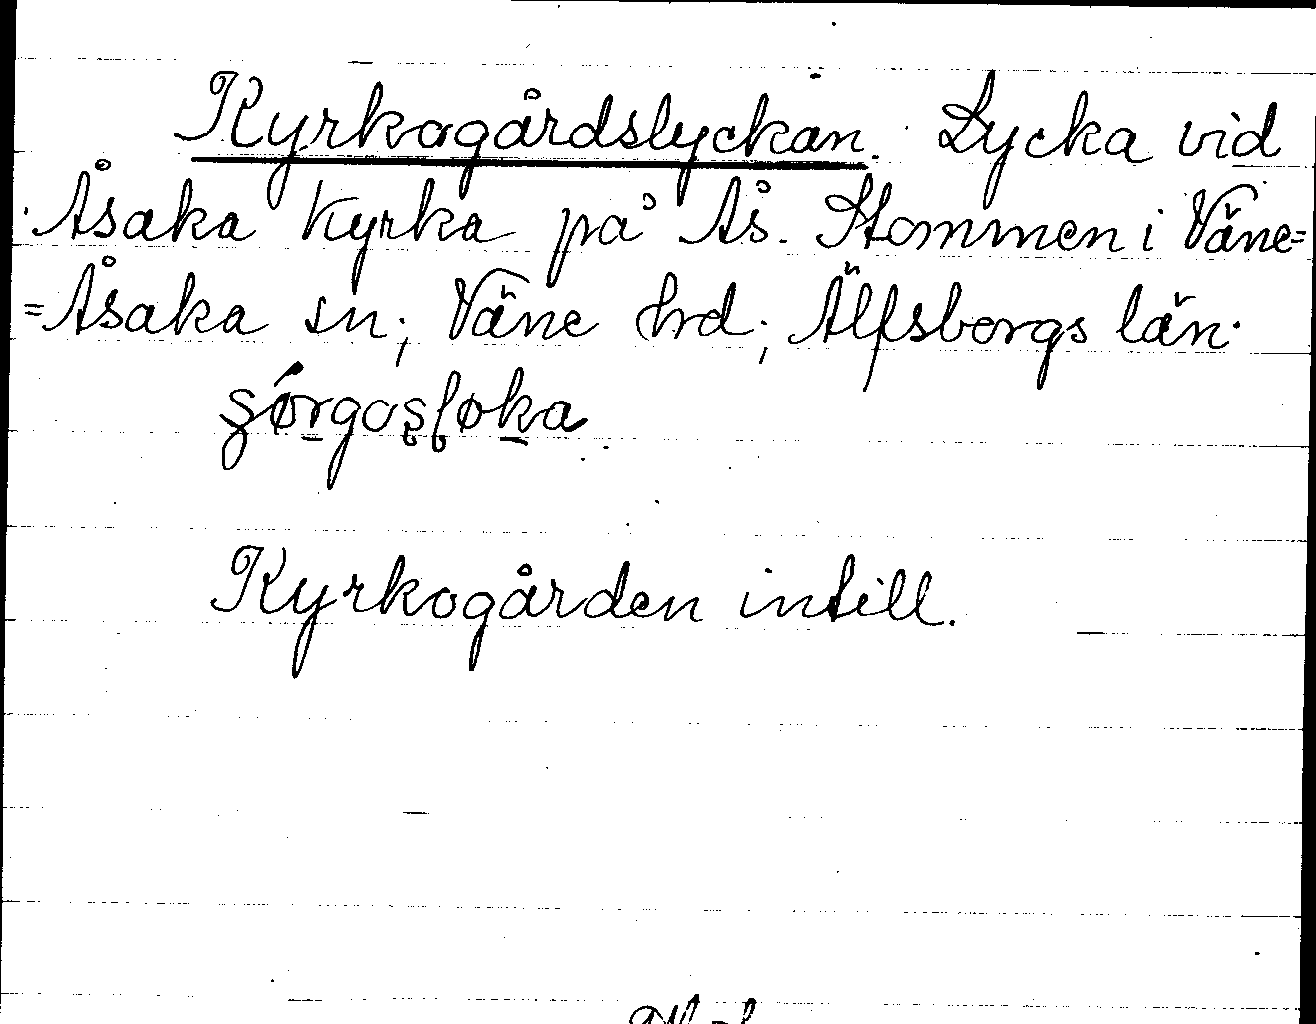 Kyrkogårdslyckan. Lycka vid
Åsaka kyrka på Ås. Stommen i Väne=
=Åsaka sn; Väne hrd; Älfsborgs län.
Kyrkogården intill.